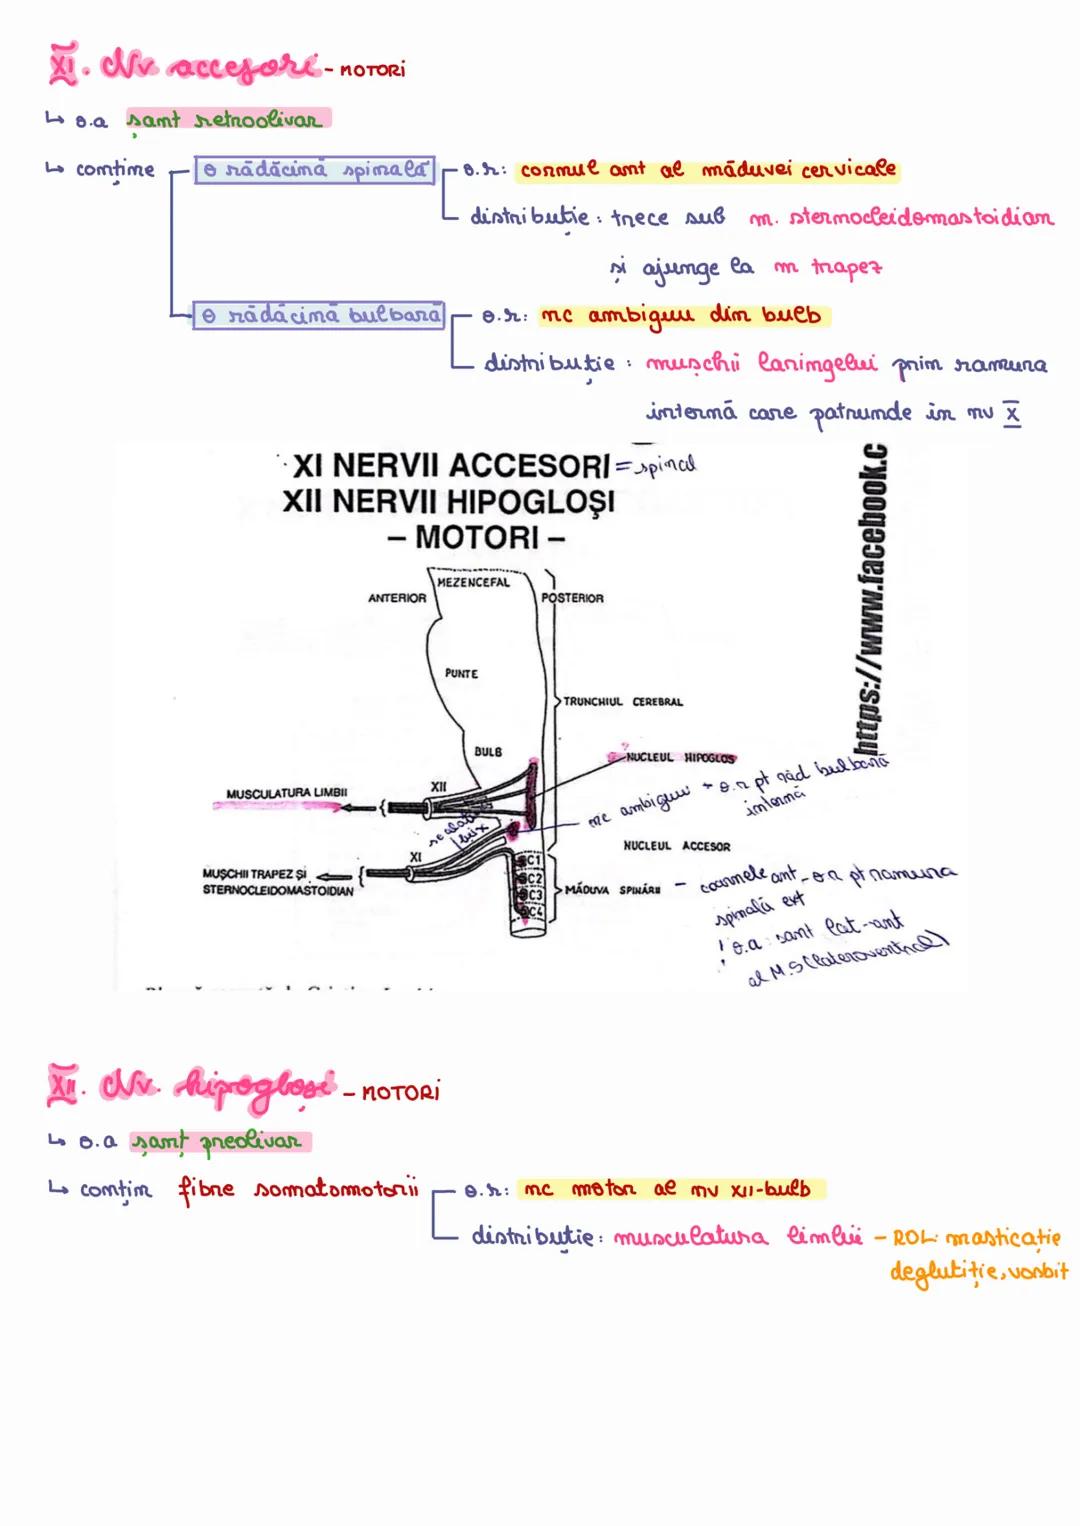 XI. Nv accesori - MOTORi
↳ o.a șanț retroolivar
↳ conține o rădăcină spinală o.r: cornul ant al măduvei cervicale
distribuție: trece sub m. sternocleidomastoidian
și ajunge la m trapez
o rădăcină bulbară o.r: nc ambiguu din bulb
distribuție: mușchii laringelui prin ramura
internă care patrunde in nv X
XI NERVII ACCESORI = spinal
XII NERVII HIPOGLOȘI
– MOTORI –
https://www.facebook.c
MEZENCEFAL
ANTERIOR
POSTERIOR
PUNTE
TRUNCHIUL CEREBRAL
BULB
NUCLEUL HIPOGLOS
XII
MUSCULATURA LIMBII
nc ambiguu → o.r pt răd bulbară
internă
NUCLEUL ACCESOR
XI
C1
MUȘCHII TRAPEZ ȘI
STERNOCLEIDOMASTOIDIAN
C2
C3
C4
MĂDUVA SPINĂRII - coarnele ant - o.r pt ramura
spinală ext
! o.a: sant lat-ant
al M.S (lateroventral)
XII. Nv. hipogloși - MOTORi
↳ o.a șanț preolivar
↳ conțin fibre somatomotorii o.r: nc motor al nv XII-bulb
distribuție: musculatura limbii - ROL: masticație
deglutiție, vorbit